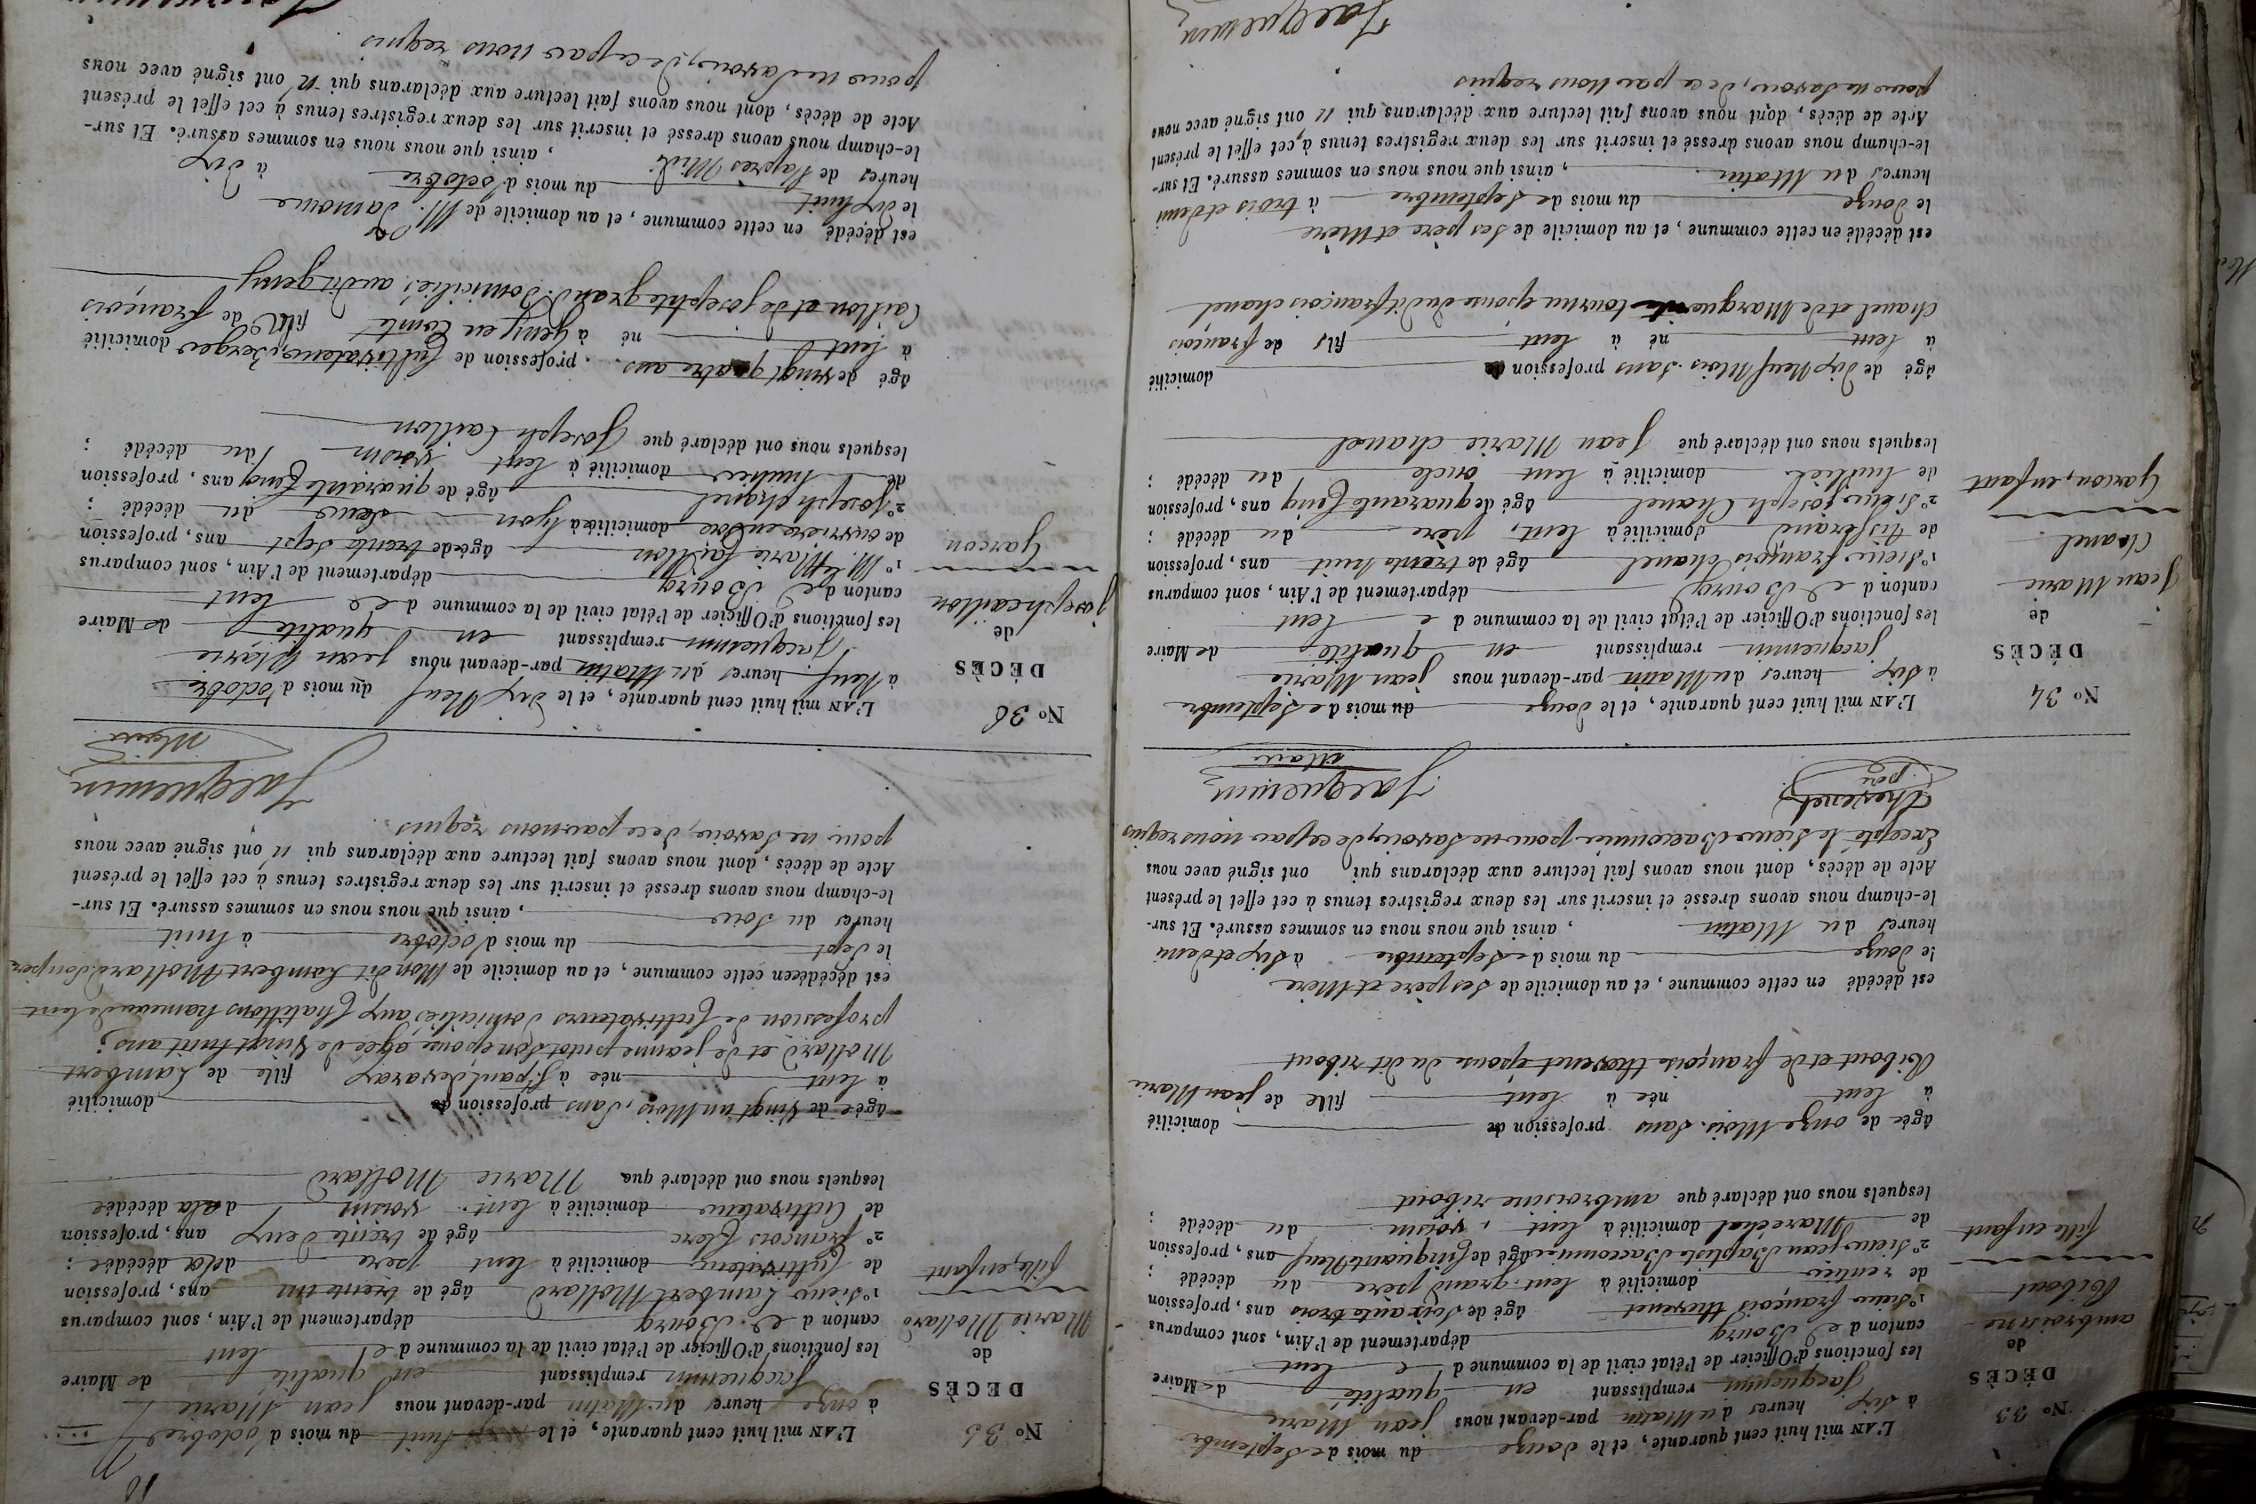 N° 33
DÉCÈS
de
ambroisine
Ribout
fille enfant
L'AN mil huit cent quarante, et le douze du mois de Septembre
à Six heures du Matin par-devant nous jean Marie
Jacquemin remplissant en qualité de Maire
les fonctions d'Officier de l'état civil de la commune de Lent
canton de Bourg département de l'Ain, sont comparus
1° Sieur françois thevenet âgé de Soixante trois ans, profession
de rentier domicilié à Lent grand père du décédé ;
2° Sieur jean Baptiste Baccounin âgé de Cinquante Neuf ans, profession
de Maréchal domicilié à Lent, voisin du décédé ;
lesquels nous ont déclaré que ambroisine ribout
âgée de onze Mois. Sans profession de domicilié
à Lent née à Lent fille de jean Marie
Ribout et de françoise thevenet épouse du dit ribout
est décédé en cette commune, et au domicile de Ses père et Mère
le douze du mois de Septembre à Six et demi
heures du Matin, ainsi que nous nous en sommes assuré. Et sur-
le-champ nous avons dressé et inscrit sur les deux registres tenus à cet effet le présent
Acte de décès, dont nous avons fait lecture aux déclarans qui ont signé avec nous
Excepté le Sieur Baccounin pour ne Savoir, de ce par nous requis
Thevenet
père
Jacquemin
Maire
N° 34
DÉCÈS
de
jean Marie
Chanel
Garçon, enfant
L'AN mil huit cent quarante, et le douze du mois de Septembre
à Six heures du Matin par-devant nous jean Marie
jacquemin remplissant en qualité de Maire
les fonctions d'Officier de l'état civil de la commune de Lent
canton de Bourg département de l'Ain, sont comparus
1° Sieur françois Chanel âgé de trente huit ans, profession
de tisserand domicilié à Lent, père du décédé ;
2° Sieur joseph Chanel âgé de quarante Cinq ans, profession
de huilier domicilié à Lent oncle du décédé ;
lesquels nous ont déclaré que jean Marie chanel
âgé de dix Neuf Mois. Sans profession de domicilié
à Lent né à Lent fils de françois
Chanel et de Marguerite tournu épouse du dit françois chanel
est décédé en cette commune, et au domicile de Ses père et Mère
le douze du mois de Septembre à trois et demi
heures du Matin, ainsi que nous nous en sommes assuré. Et sur-
le-champ nous avons dressé et inscrit sur les deux registres tenus à cet effet le présent
Acte de décès, dont nous avons fait lecture aux déclarans qui n'ont signé avec nous
pour ne Savoir, de ce par Nous requis
Jacquemin
10
N° 35
DÉCÈS
de
Marie Mollard
fille, enfant
L'AN mil huit cent quarante, et le huit du mois d'octobre
à onze heures du Matin par-devant nous jean Marie
Jacquemin remplissant en qualité de Maire
les fonctions d'Officier de l'état civil de la commune de Lent
canton de Bourg département de l'Ain, sont comparus
1° Sieur Lambert Mollard âgé de trente un ans, profession
de Cultivateur domicilié à Lent père de la décédée ;
2° françois Clerc âgé de trente deux ans, profession
de Cultivateur domicilié à Lent. voisin de la décédée
lesquels nous ont déclaré que Marie Mollard
âgée de Vingt un Mois, Sans profession de domicilié
à Lent née à St paul de varax fille de Lambert
Mollard et de jeanne pidot Son épouse agée de Vingt huit ans ;
profession de Cultivateurs domiciliés aux Chatillons hameau de Lent
est décédée en cette commune, et au domicile de Mon dit Lambert Mollard Son père
le Sept du mois d'octobre à huit
heures du Soir, ainsi que nous nous en sommes assuré. Et sur-
le-champ nous avons dressé et inscrit sur les deux registres tenus à cet effet le présent
Acte de décès, dont nous avons fait lecture aux déclarans qui n'ont signé avec nous
pour ne Savoir, de ce par nous requis
Jacquemin
Maire
N° 36
DÉCÈS
de
joseph caillon
Garçon
L'AN mil huit cent quarante, et le dix Neuf du mois d'octobre
à Neuf heures du Matin par-devant nous jean Marie
Jacquemin remplissant en qualité de Maire
les fonctions d'Officier de l'état civil de la commune de Lent
canton de Bourg département de l'Ain, sont comparus
1° Marie Caillon âgée de trente Sept ans, profession
de ouvrière en Soie domiciliée à Lyon Sœur du décédé ;
2° Joseph chanel âgé de quarante Cinq ans, profession
de huilier domicilié à Lent voisin du décédé ;
lesquels nous ont déclaré que Joseph Caillon
âgé de vingt quatre ans. profession de Cultivateur, Berger domicilié
à Lent né à Geny en Comté fils de François
Caillon et de josephte grand. Domiciliés audit geny
est décédé en cette commune, et au domicile de M. Damour
le dix huit du mois d'octobre à dix
heures de l'après Midi, ainsi que nous nous en sommes assuré. Et sur-
le-champ nous avons dressé et inscrit sur les deux registres tenus à cet effet le présent
Acte de décès, dont nous avons fait lecture aux déclarans qui n'ont signé avec nous
pour ne Savoir, de ce par nous requis